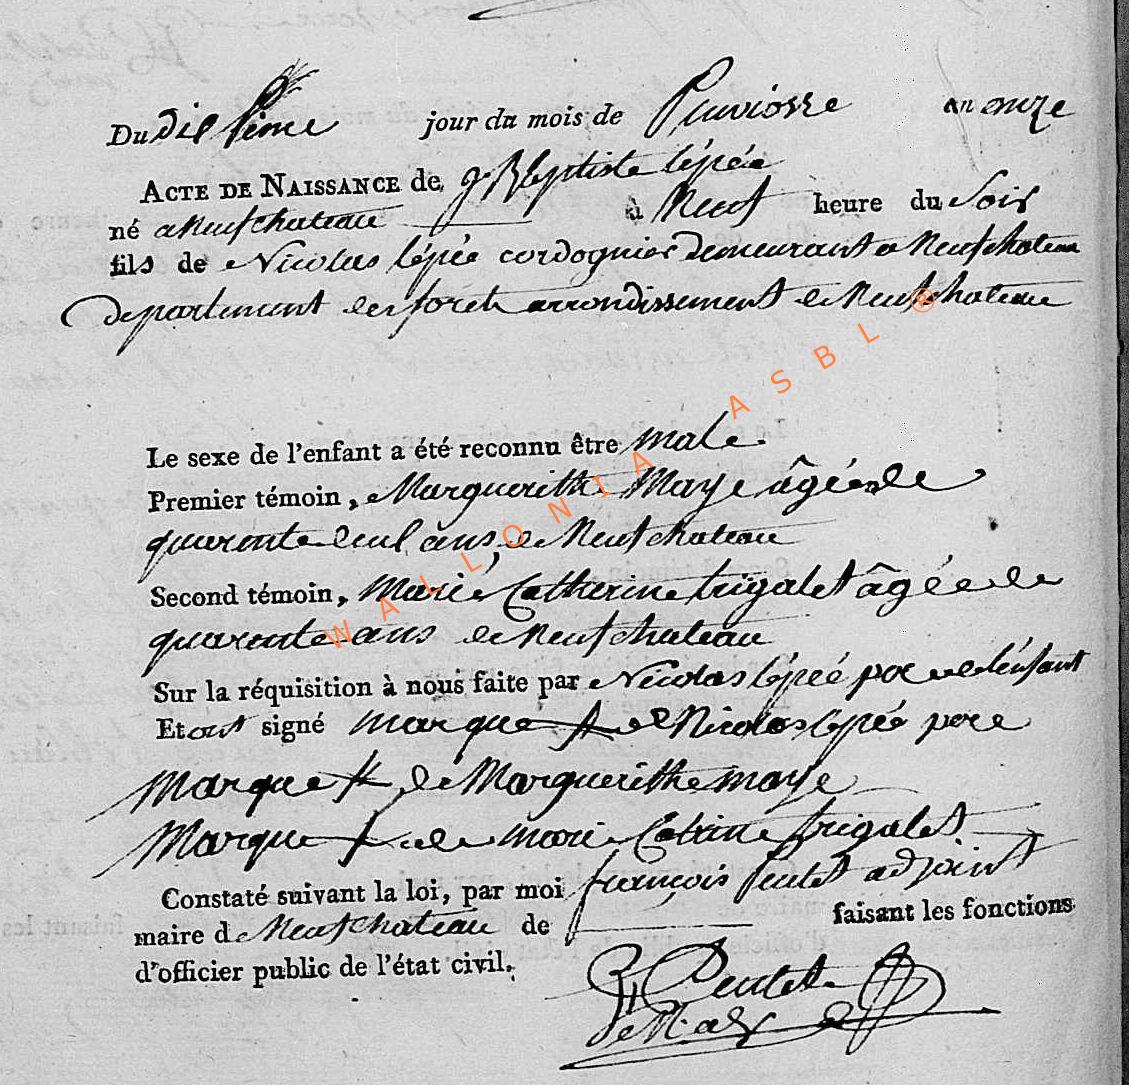 Du dixieme jour du mois de Pluviosse an onze
ACTE DE NAISSANCE de j Bptiste lépée
né a Neufchateau à Neuf heure du Soir
fils de Nicolas lépée cordognier demeurant a Neufchateau
departement des forets arrondissement de Neufchateau
Le sexe de l'enfant a été reconnu être male.
Premier témoin, Margueritte Maye âgée de
quarante deux ans, de Neufchateau
Second témoin, Marie Catherine trigalet âgée de
quarante ans de Neufchateau
Sur la réquisition à nous faite par Nicolas lépée pere de l'enfant
Et ont signé marque de Nicolas lépée pere
Marque de Margueritte maye
Marque de marie Catrine trigalet
Constaté suivant la loi, par moi françois adjoint
maire de Neufchateau de faisant les fonctions
d'officier public de l'état civil.
WALLONIA ASBL ®